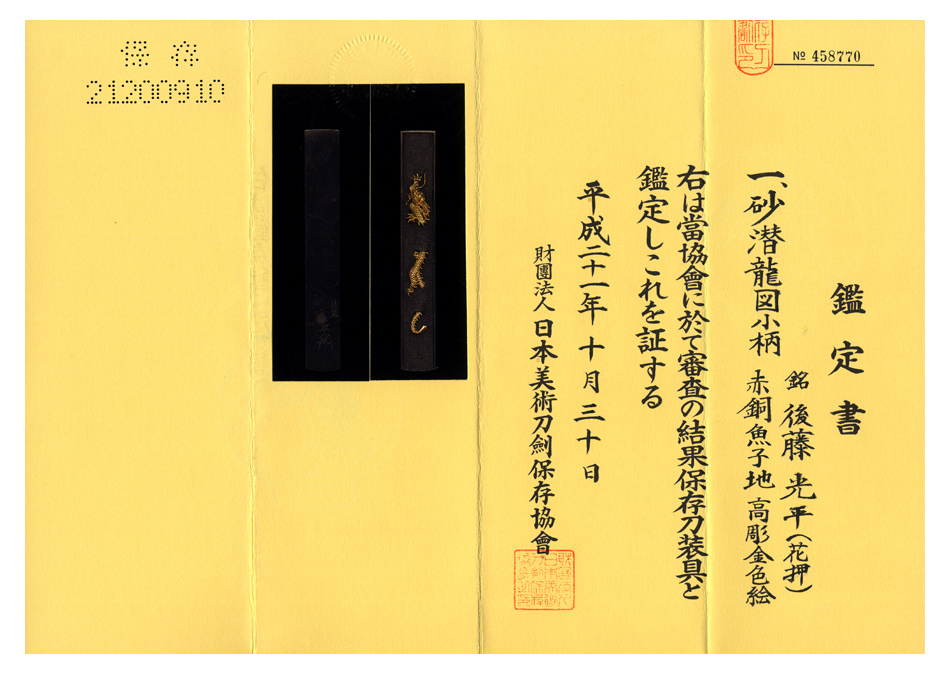 保存
21200910
№ 458770
鑑定書
一、砂潜龍図小柄
銘 後藤光平(花押)
赤銅魚子地高彫金色絵
右は當協會に於て審査の結果保存刀装具と
鑑定しこれを証する
平成二十一年十月三十日
財團法人 日本美術刀劍保存協會